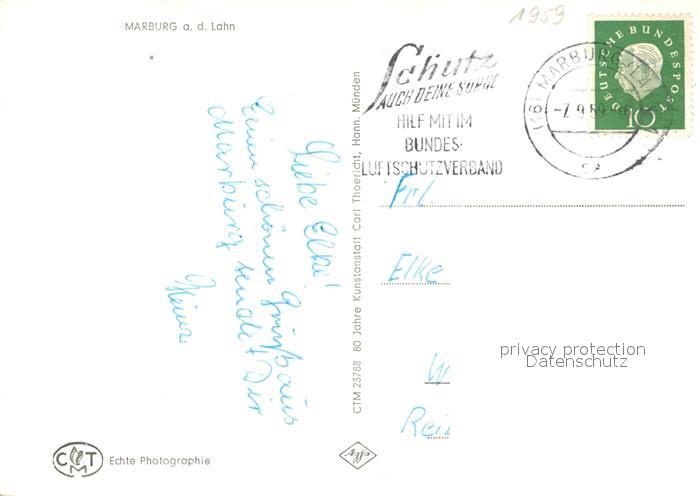 MARBURG a. d. Lahn
1959
Schutz
AUCH DEINE SORGE
HILF MIT IM
BUNDES-
LUFTSCHUTZVERBAND
(16) MARBURG
-7.9.59
DEUTSCHE BUNDESPOST
10
Liebe Elke!
Einen schönen Gruß aus
Marburg sendet Dir
Heiner
CTM 23788 80 Jahre Kunstanstalt Carl Thoericht, Hann. Münden
Frl.
Elke
privacy protection
Datenschutz
CTM
Echte Photographie
Agfa